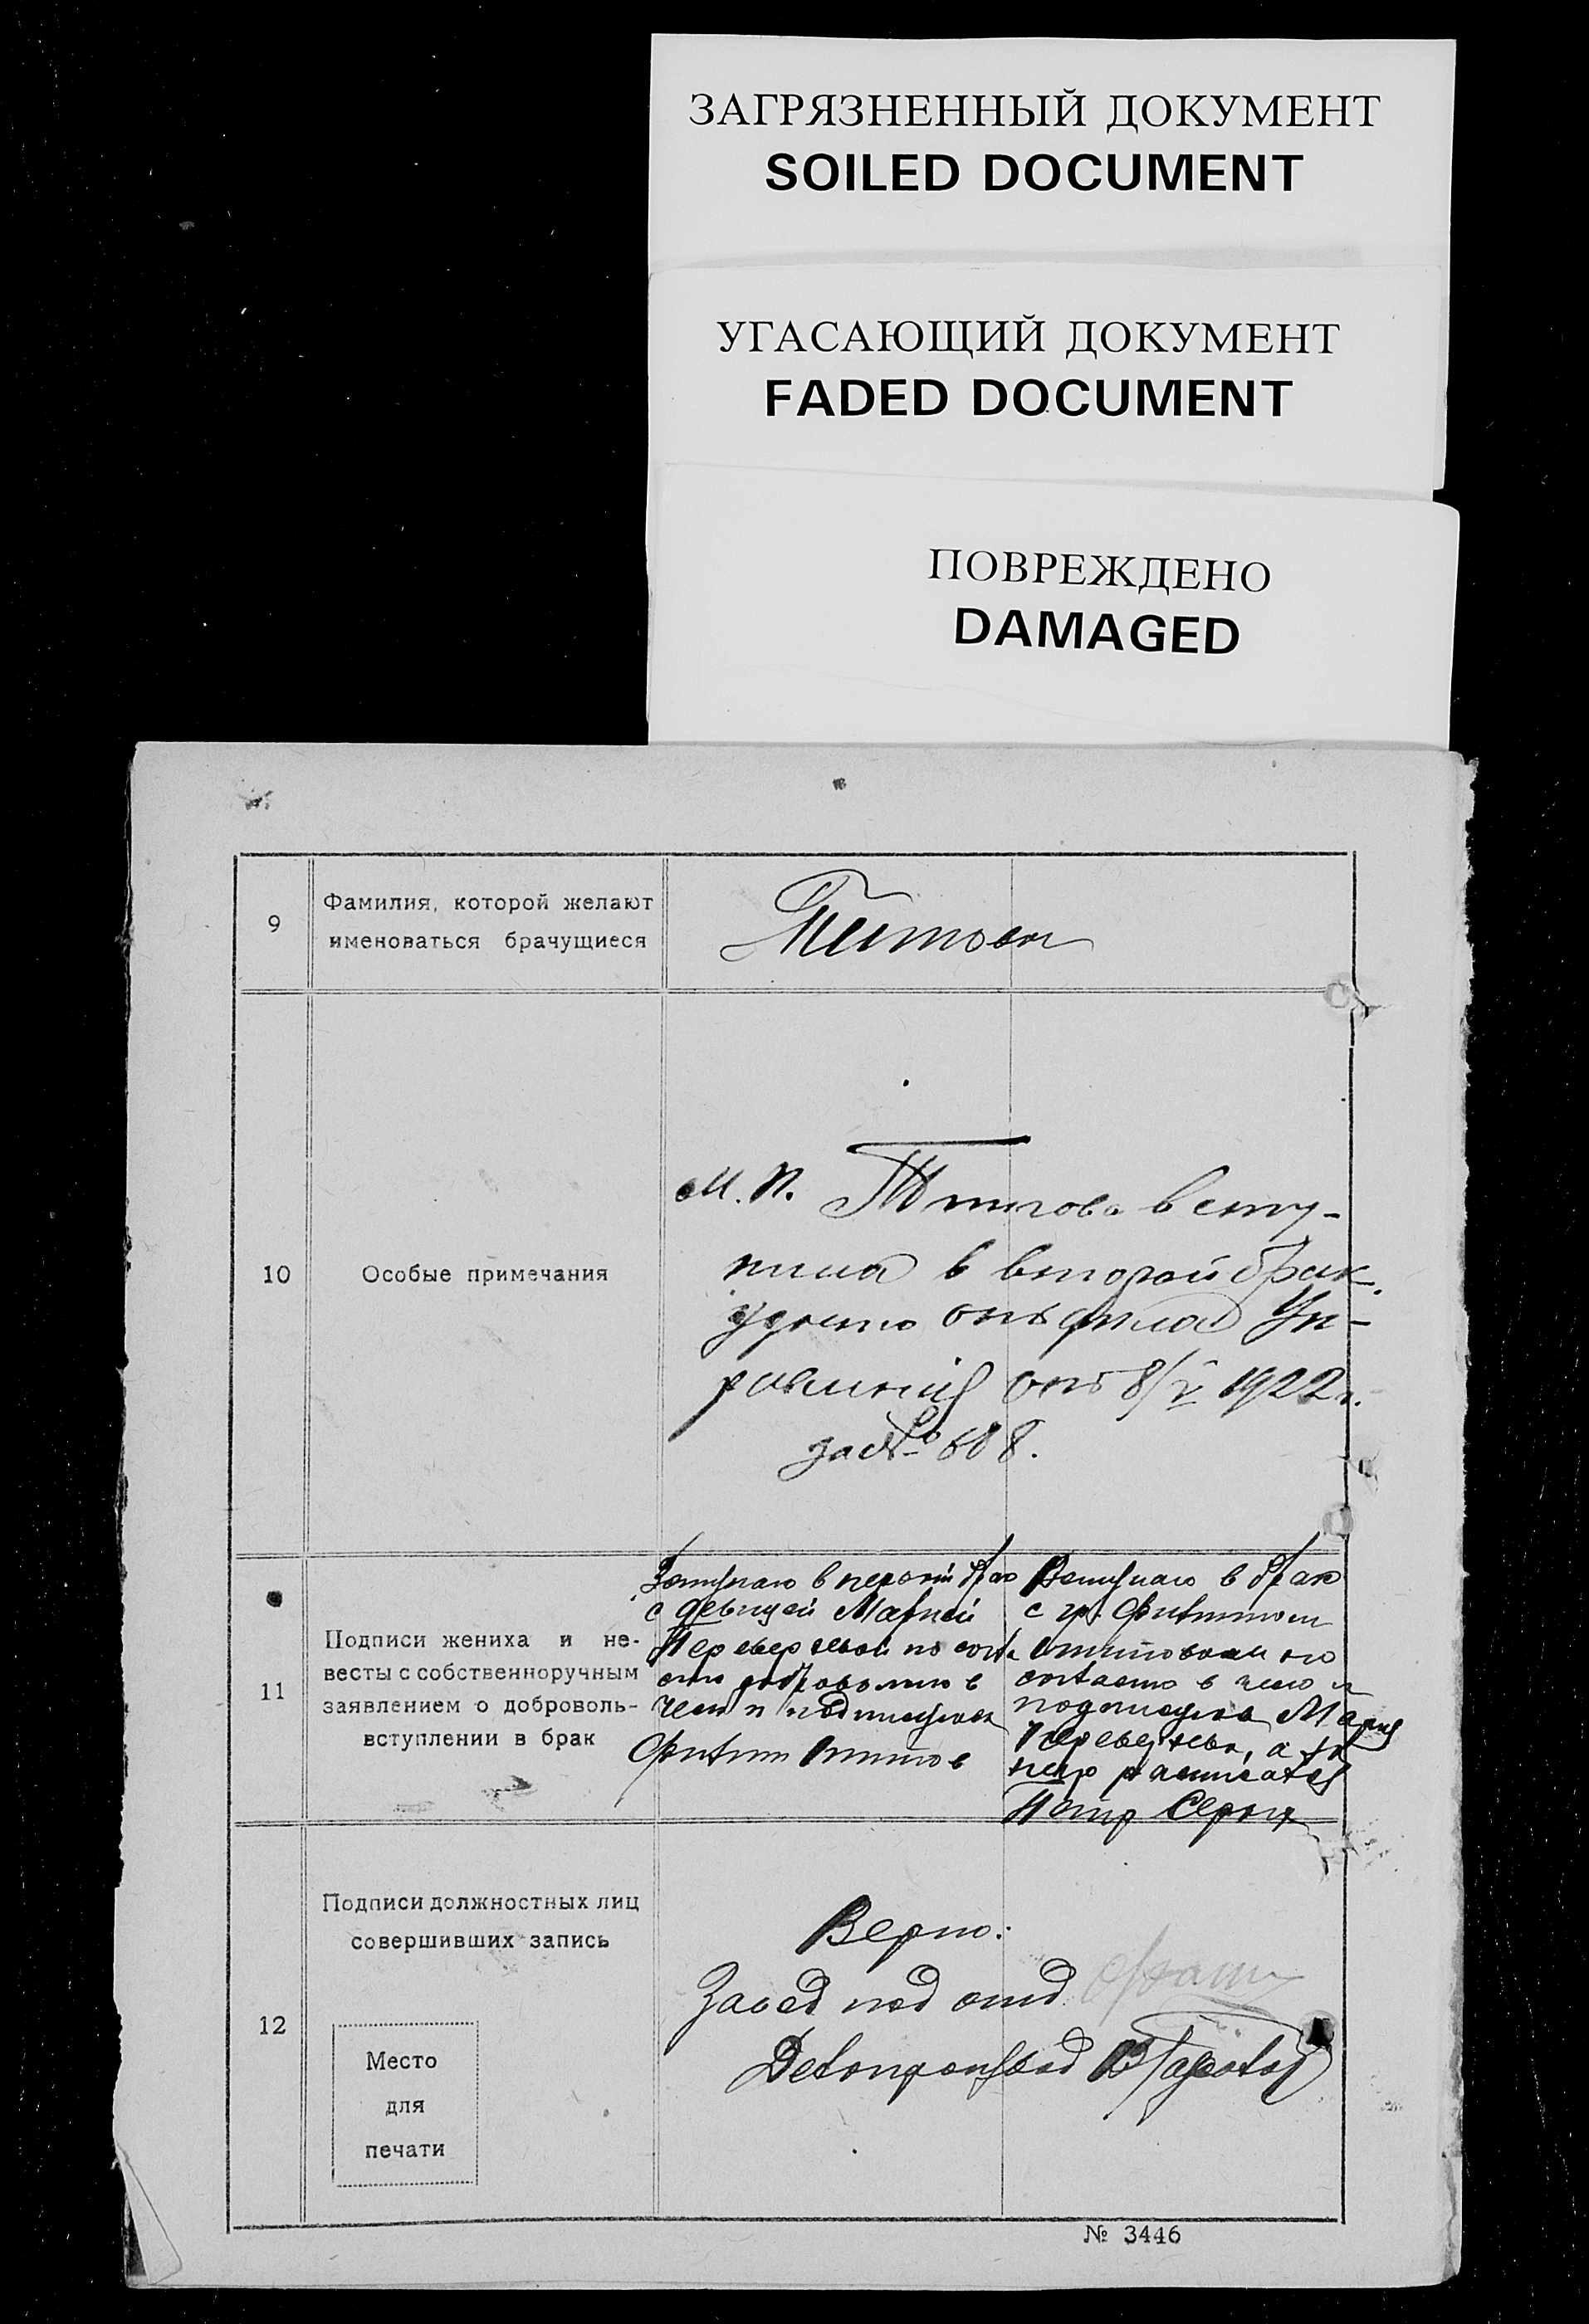 ЗАГРЯЗНЕННЫЙ ДОКУМЕНТ
SOILED DOCUMENT
УГАСАЮЩИЙ ДОКУМЕНТ
FADED DOCUMENT
ПОВРЕЖДЕНО
DAMAGED
9
Фамилия, которой желают
именоваться брачущиеся
Титовы
10
Особые примечания
М. П. Титова всту-
пила в второй брак.
отдела Уп-
равления от 8/V 1922 г.
за № 608.
11
Подписи жениха и не-
весты с собственноручным
заявлением о доброволь-
вступлении в брак
Вступаю в первый брак
с девицей Марией
по согла
добровольно в
чем и подписуюсь
Филип Титов
Вступаю в брак
с гр. Филиппом
Титовым по
согласию в чем и
подписуюсь Мария
а за
неграмотной расписался
Петр
12
Подписи должностных лиц
совершивших запись
Место
для
печати
Верно:
Завед под отд
Делопроизвод
№ 3446